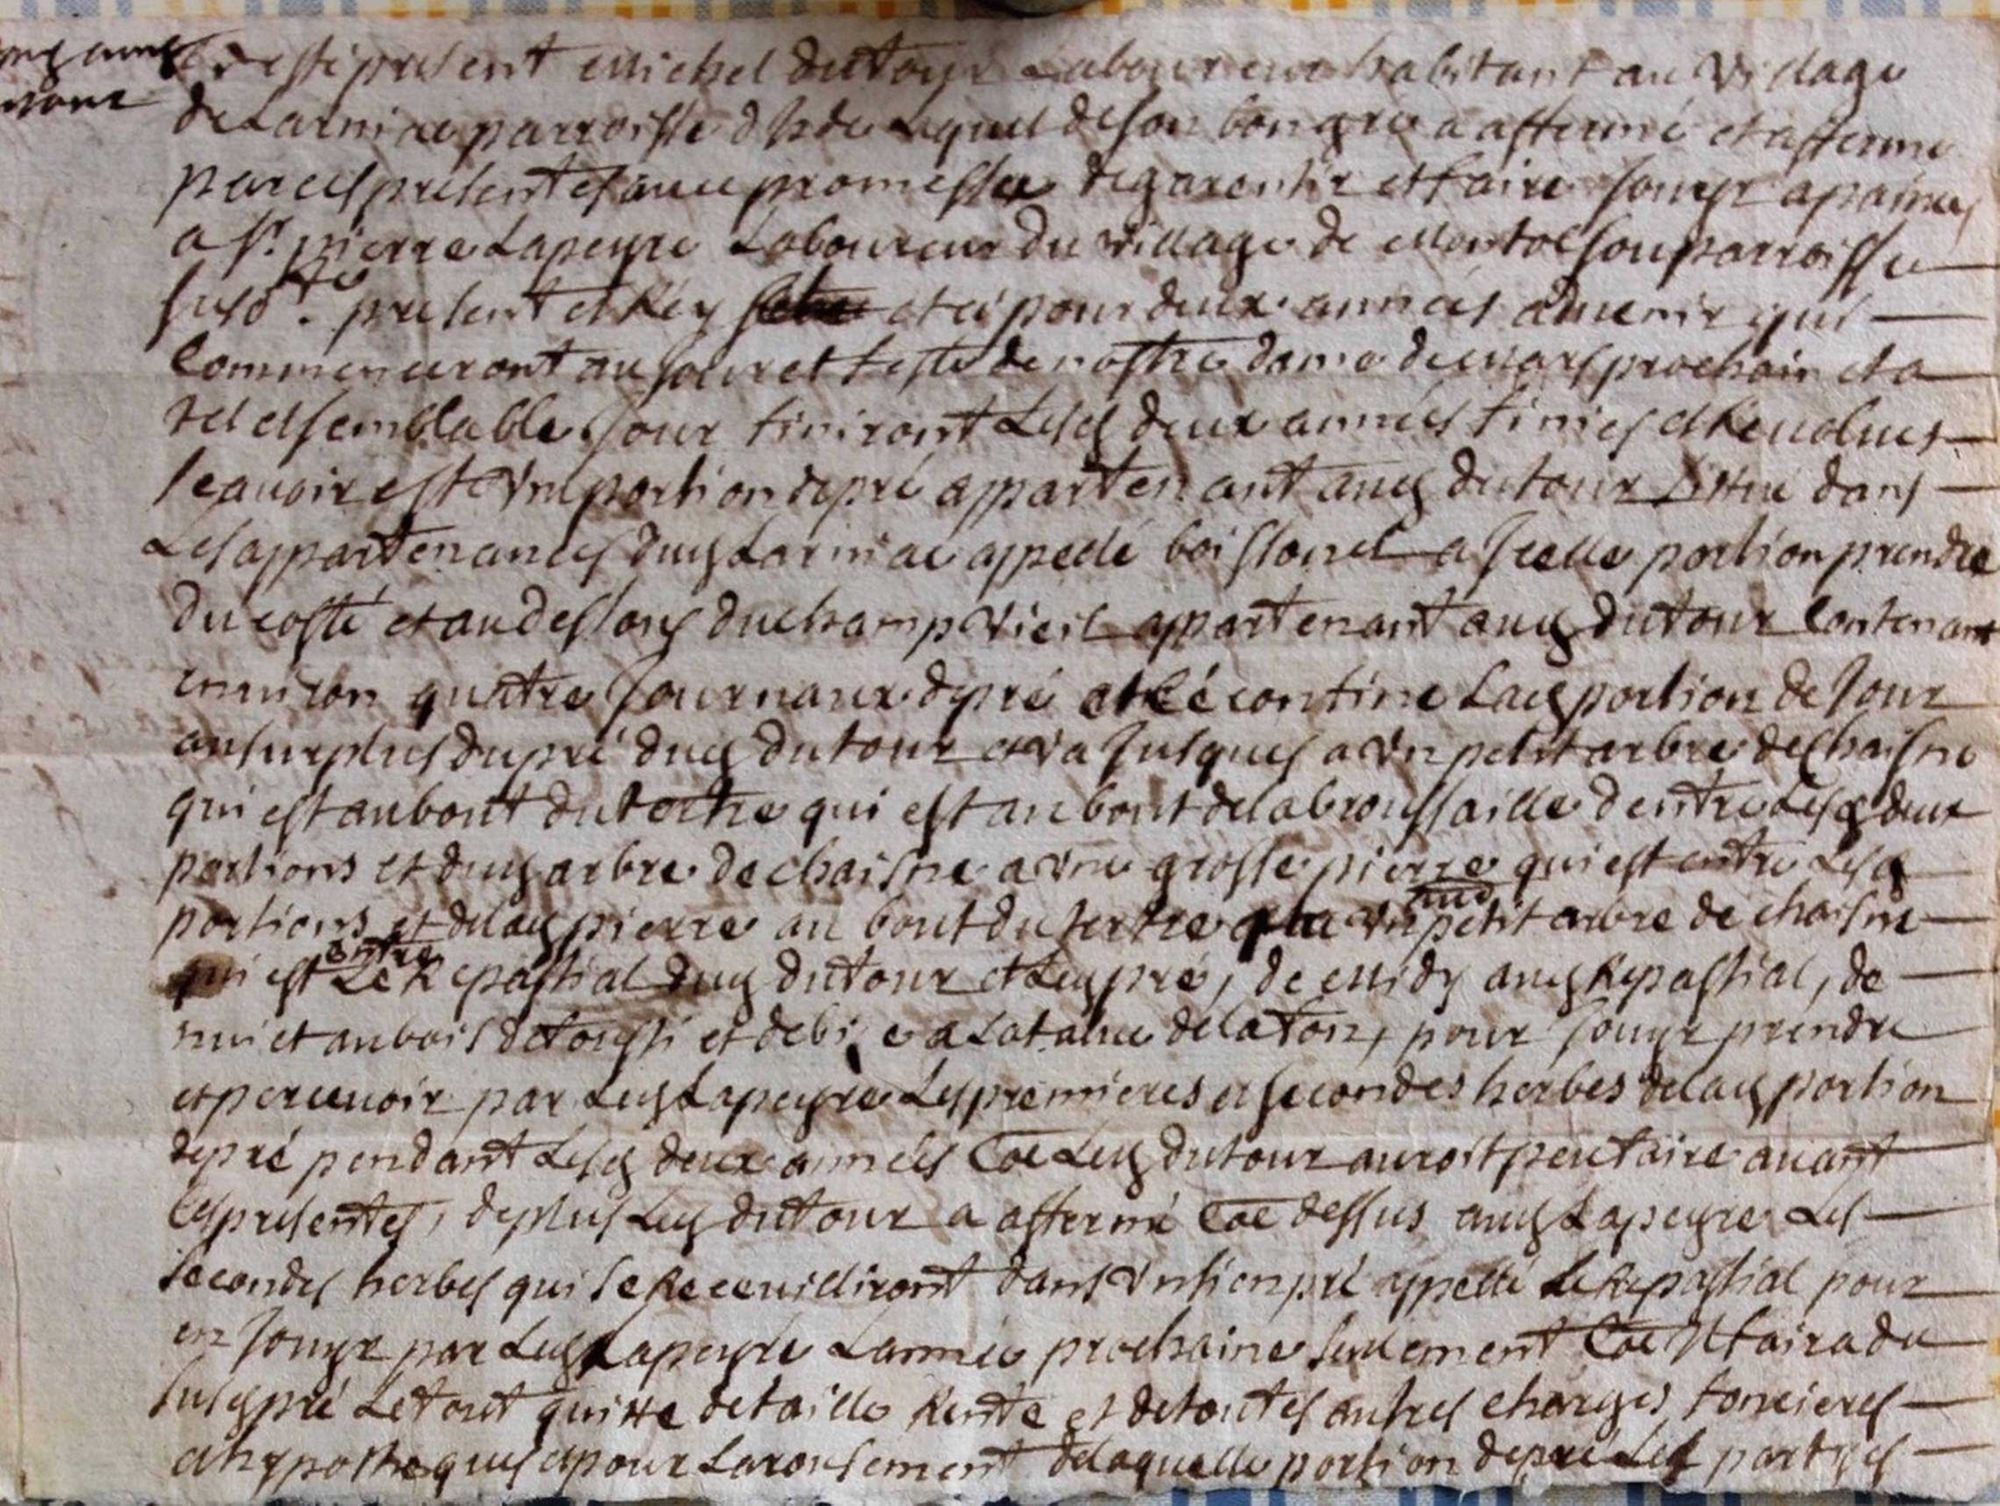 est present Michel dutour Laboureur habitant au village
de Larniac parroisse lequel de son bon gré a affermé et afferme
par ces presentes avec promesse de garentir et faire jouyr apaines
a Sr. pierre Lapeyre Laboureur du village de Montolson parroisse
susdte. present et et ce pour deux années advenir qui
Commenceront au jour et feste de nostre dame de mars prochain et a
tel et semblable jour finiront Lesd deux années finies et Revolues
scavoir est vne portion de pré appartenant aud dutour sittue dans
Les appartenances dud Larniac appellé boislonet a jcelle portion prendre
du costé et au dessous du champ vieil appartenant aud dutour Contenant
environ quatre journaux de pré confine Lad portion de jour
au surplus du pré dud dutour et va jusques a vn petit arbre de chaisne
qui est au bout du tertre qui est au bout de la broussaille d entre Lesd deux
portions et dud arbre de chaisne a vne grosse pierre qui est entre Lesd
portions et de lad pierre au bout du tertre vn petit arbre de chaisne
qui est entre Le Repastial dud dutour et Led pré, de midy aud Repastial, de
nuict au bois de et de bize a de la fon, pour jouyr prendre
et percevoir par Led Lapeyre Les premieres et secondes herbes de lad portion
de pré pendant Lesd deux années Coe Led dutour auroit peu faire avant
Ces presentes, de plus Led dutour a affermé Coe dessus aud Lapeyre Les
secondes herbes qui se Receuilliront dans vn sien pré appellé Le Repastial pour
en jouyr par Led Lapeyre L année prochaine seulement Coe Jl faira du
susd pré Le tout quitte de taille Rente et de toutes autres charges foncieres
et hypotheques et pour L arousement de laquelle portion de pré Les partyes